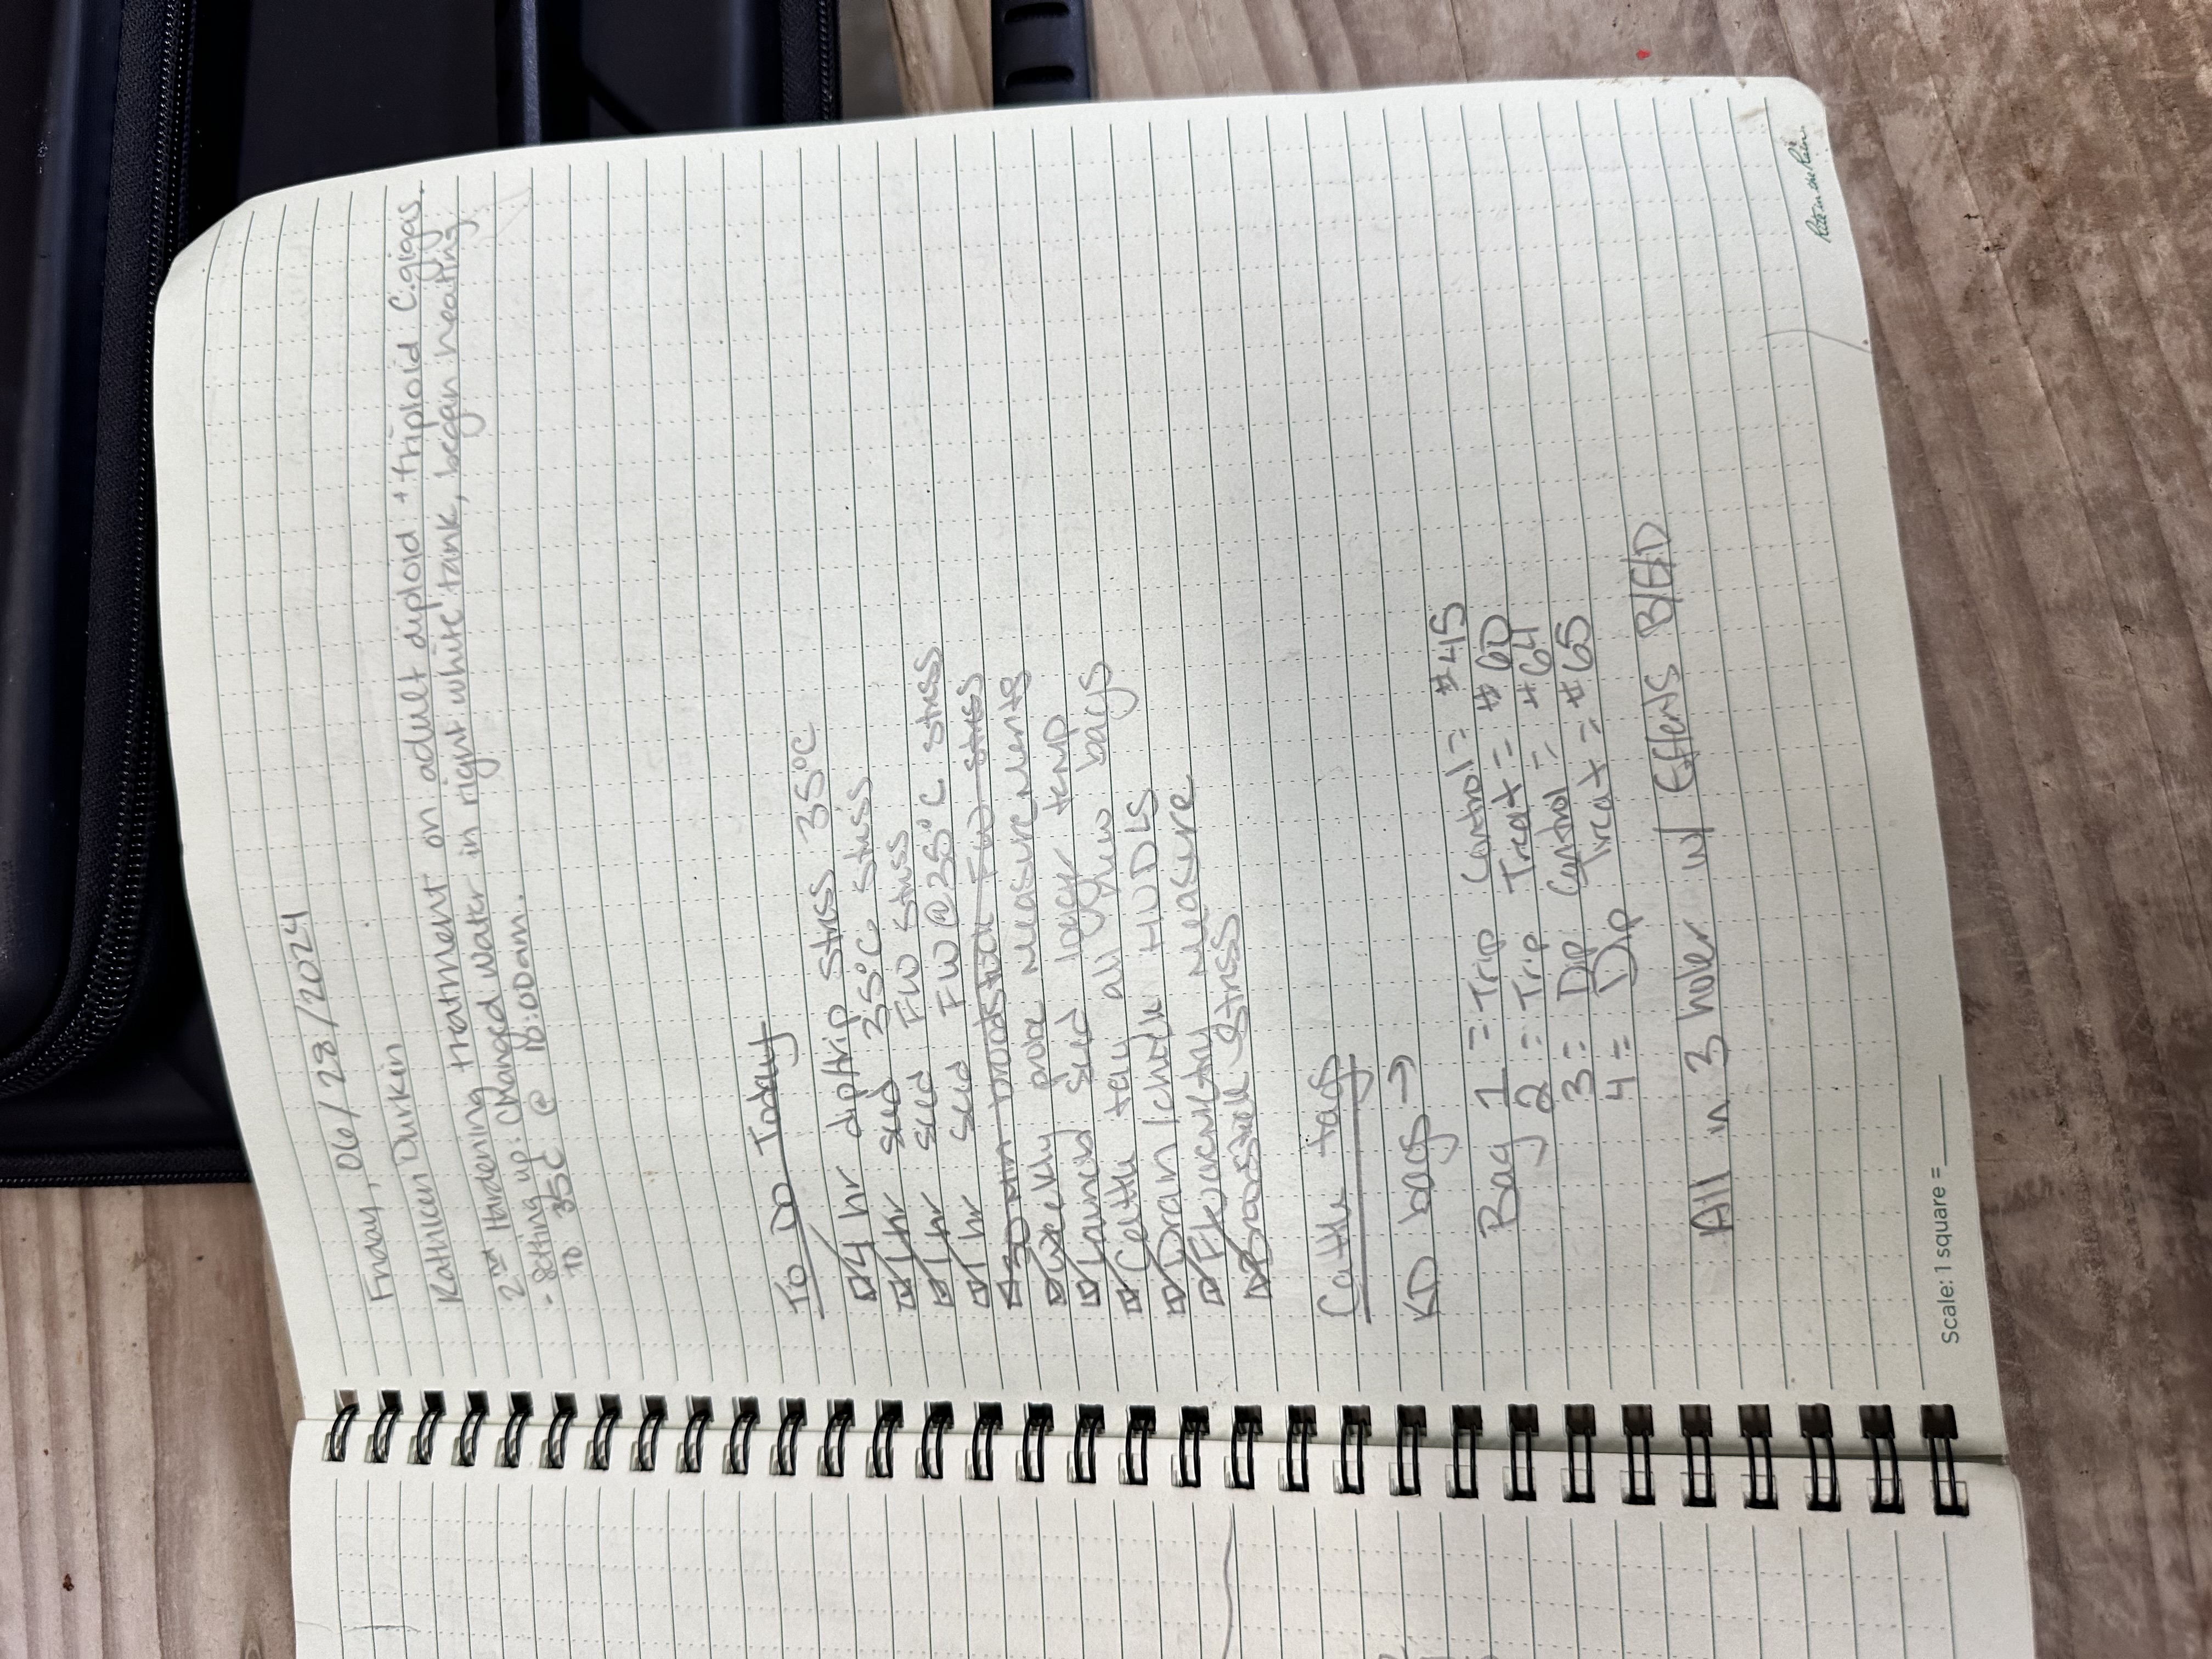 Friday, 06/28/2024
Kathleen Durkin
2nd Hardening treatment on adult diploid + triploid C.gigas.
- Setting up: Changed water in right white tank, began heating
to 35C @ 10:00am.
To Do Today
4 hr dip/trip stress 35°C
1 hr seed 35°C stress
1 hr seed FW stress
1 hr seed FW @ 35°C stress
30 min broodstock FW stress
Weekly probe measurements
Launch seed logger temp
Cattle tag all new bags
Drain/check HUDLS
measure
Broodstock stress
Cattle tags
KD bags →
Bag 1 = Trip Control = #45
2 = Trip Treat = #60
3 = Dip Control = #64
4 = Dip Treat = #65
All in 3 holer w/ Effects B/E/D
Rite in the Rain
Scale: 1 square =